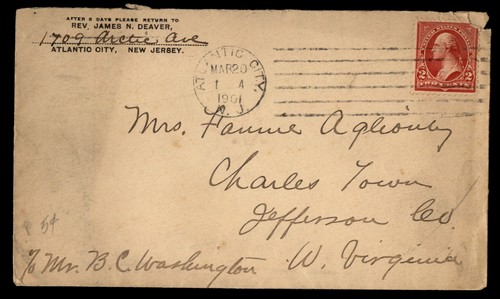 AFTER 5 DAYS PLEASE RETURN TO
REV. JAMES N. DEAVER,
1709 Arctic Ave
ATLANTIC CITY, NEW JERSEY.
ATLANTIC CITY,
MAR 20
1901
N. J.
2 2
TWO CENTS
Mrs. Fannie Aglionby
Charles Town
Jefferson Co.
W. Virginia
To Mr. B. C. Washington
5¢